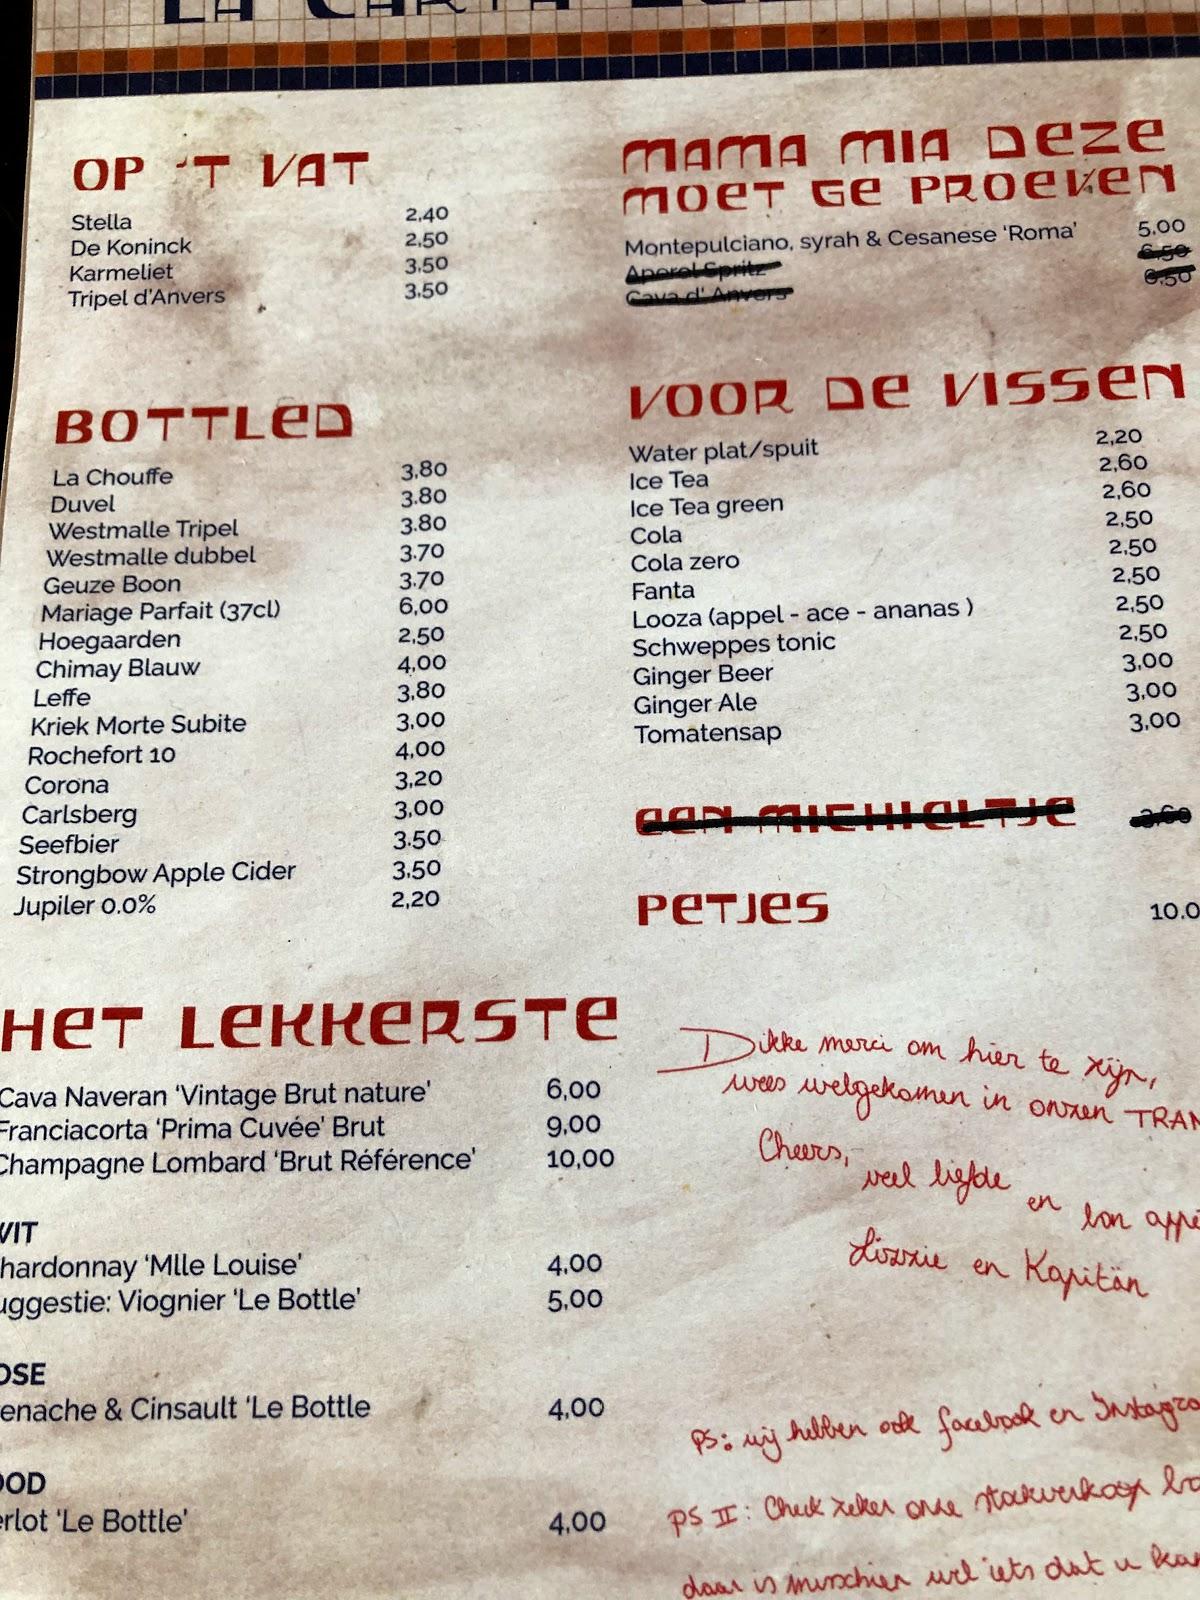 LA CARTA
OP 'T VAT
Stella 2,40
De Koninck 2,50
Karmeliet 3,50
Tripel d'Anvers 3,50
BOTTLED
La Chouffe 3,80
Duvel 3,80
Westmalle Tripel 3,80
Westmalle dubbel 3,70
Geuze Boon 3,70
Mariage Parfait (37cl) 6,00
Hoegaarden 2,50
Chimay Blauw 4,00
Leffe 3,80
Kriek Morte Subite 3,00
Rochefort 10 4,00
Corona 3,20
Carlsberg 3,00
Seefbier 3,50
Strongbow Apple Cider 3,50
Jupiler 0.0% 2,20
HET LEKKERSTE
Cava Naveran 'Vintage Brut nature' 6,00
Franciacorta 'Prima Cuvée' Brut 9,00
Champagne Lombard 'Brut Référence' 10,00
WIT
hardonnay 'Mlle Louise' 4,00
uggestie: Viognier 'Le Bottle' 5,00
OSE
enache & Cinsault 'Le Bottle 4,00
OOD
erlot 'Le Bottle' 4,00
MAMA MIA DEZE
MOET GE PROEVEN
Montepulciano, syrah & Cesanese 'Roma' 5,00
Aperol Spritz 6,50
Cava d' Anvers 6,50
VOOR DE VISSEN
Water plat/spuit 2,20
Ice Tea 2,60
Ice Tea green 2,60
Cola 2,50
Cola zero 2,50
Fanta 2,50
Looza (appel - ace - ananas ) 2,50
Schweppes tonic 2,50
Ginger Beer 3,00
Ginger Ale 3,00
Tomatensap 3,00
EEN MICHIELTJE 3,60
PETJES 10.0
Dikke merci om hier te zijn,
wees welgekomen in onzen TRAM
Cheers,
veel liefde
en bon appé
Lizzie en Kapitän
PS: wij hebben ook facebook en Instagra
PS II: Check zeker onze stockverkoop
daar is misschien wel iets dat u kan